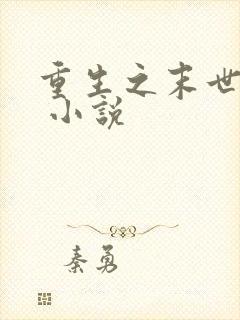 重生之末世
小說
秦勇